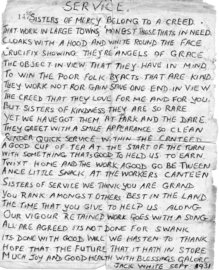 SERVICE.
SISTERS OF MERCY BELONG TO A CREED.
THAT WORK IN LARGE TOWNS, MONGST THOSE THATS IN NEED.
CLOAKS WITH A HOOD AND WHITE ROUND THE FACE
CRUCIFIX SHOWING THEY'RE ANGELS OF GRACE
THE OBJECT IN VIEW THAT THEY HAVE IN MIND
TO WIN THE POOR FOLK BY ACTS THAT ARE KIND.
THEY WORK NOT FOR GAIN SAVE ONE END IN VIEW
THE CREED THAT THEY LOVE FOR ME AND FOR YOU.
BUT SISTERS OF KINDNESS THEY ARE SO RARE
YET WE HAVE GOT THEM AT PARK AND THE DARE
THEY GREET WITH A SMILE APPEARANCE SO CLEAN
QUICK SERVICE WITHIN THE CANTEEN
A GOOD CUP OF TEA AT THE START OF THE TURN
WITH SOMETHING THATS GOOD TO HELD US TO EARN
TWIXT HOME AND THE WORK, AGOOD GO BETWEEN
ANICE LITTLE SNACK AT THE WORKERS CANTEEN
SISTERS OF SERVICE WE THINK YOU ARE GRAND
YOU RANK AMONGST OTHERS BEST IN THE LAND.
THE TIME THAT YOU GIVE TO HELP US ALONG
OUR VIGOUR RETAINED WORK GOES WITH A SONG
ALL ARE AGREED ITS NOT DONE FOR SWANK
ITS DONE WITH GOOD WILL WE HASTEN TO THANK
HOPE THAT THE FUTURE THAT IT HATH IN STORE
MUCH JOY AND GOOD HEALTH WITH BLESSINGS GALORE
JACK WHITE SEPT